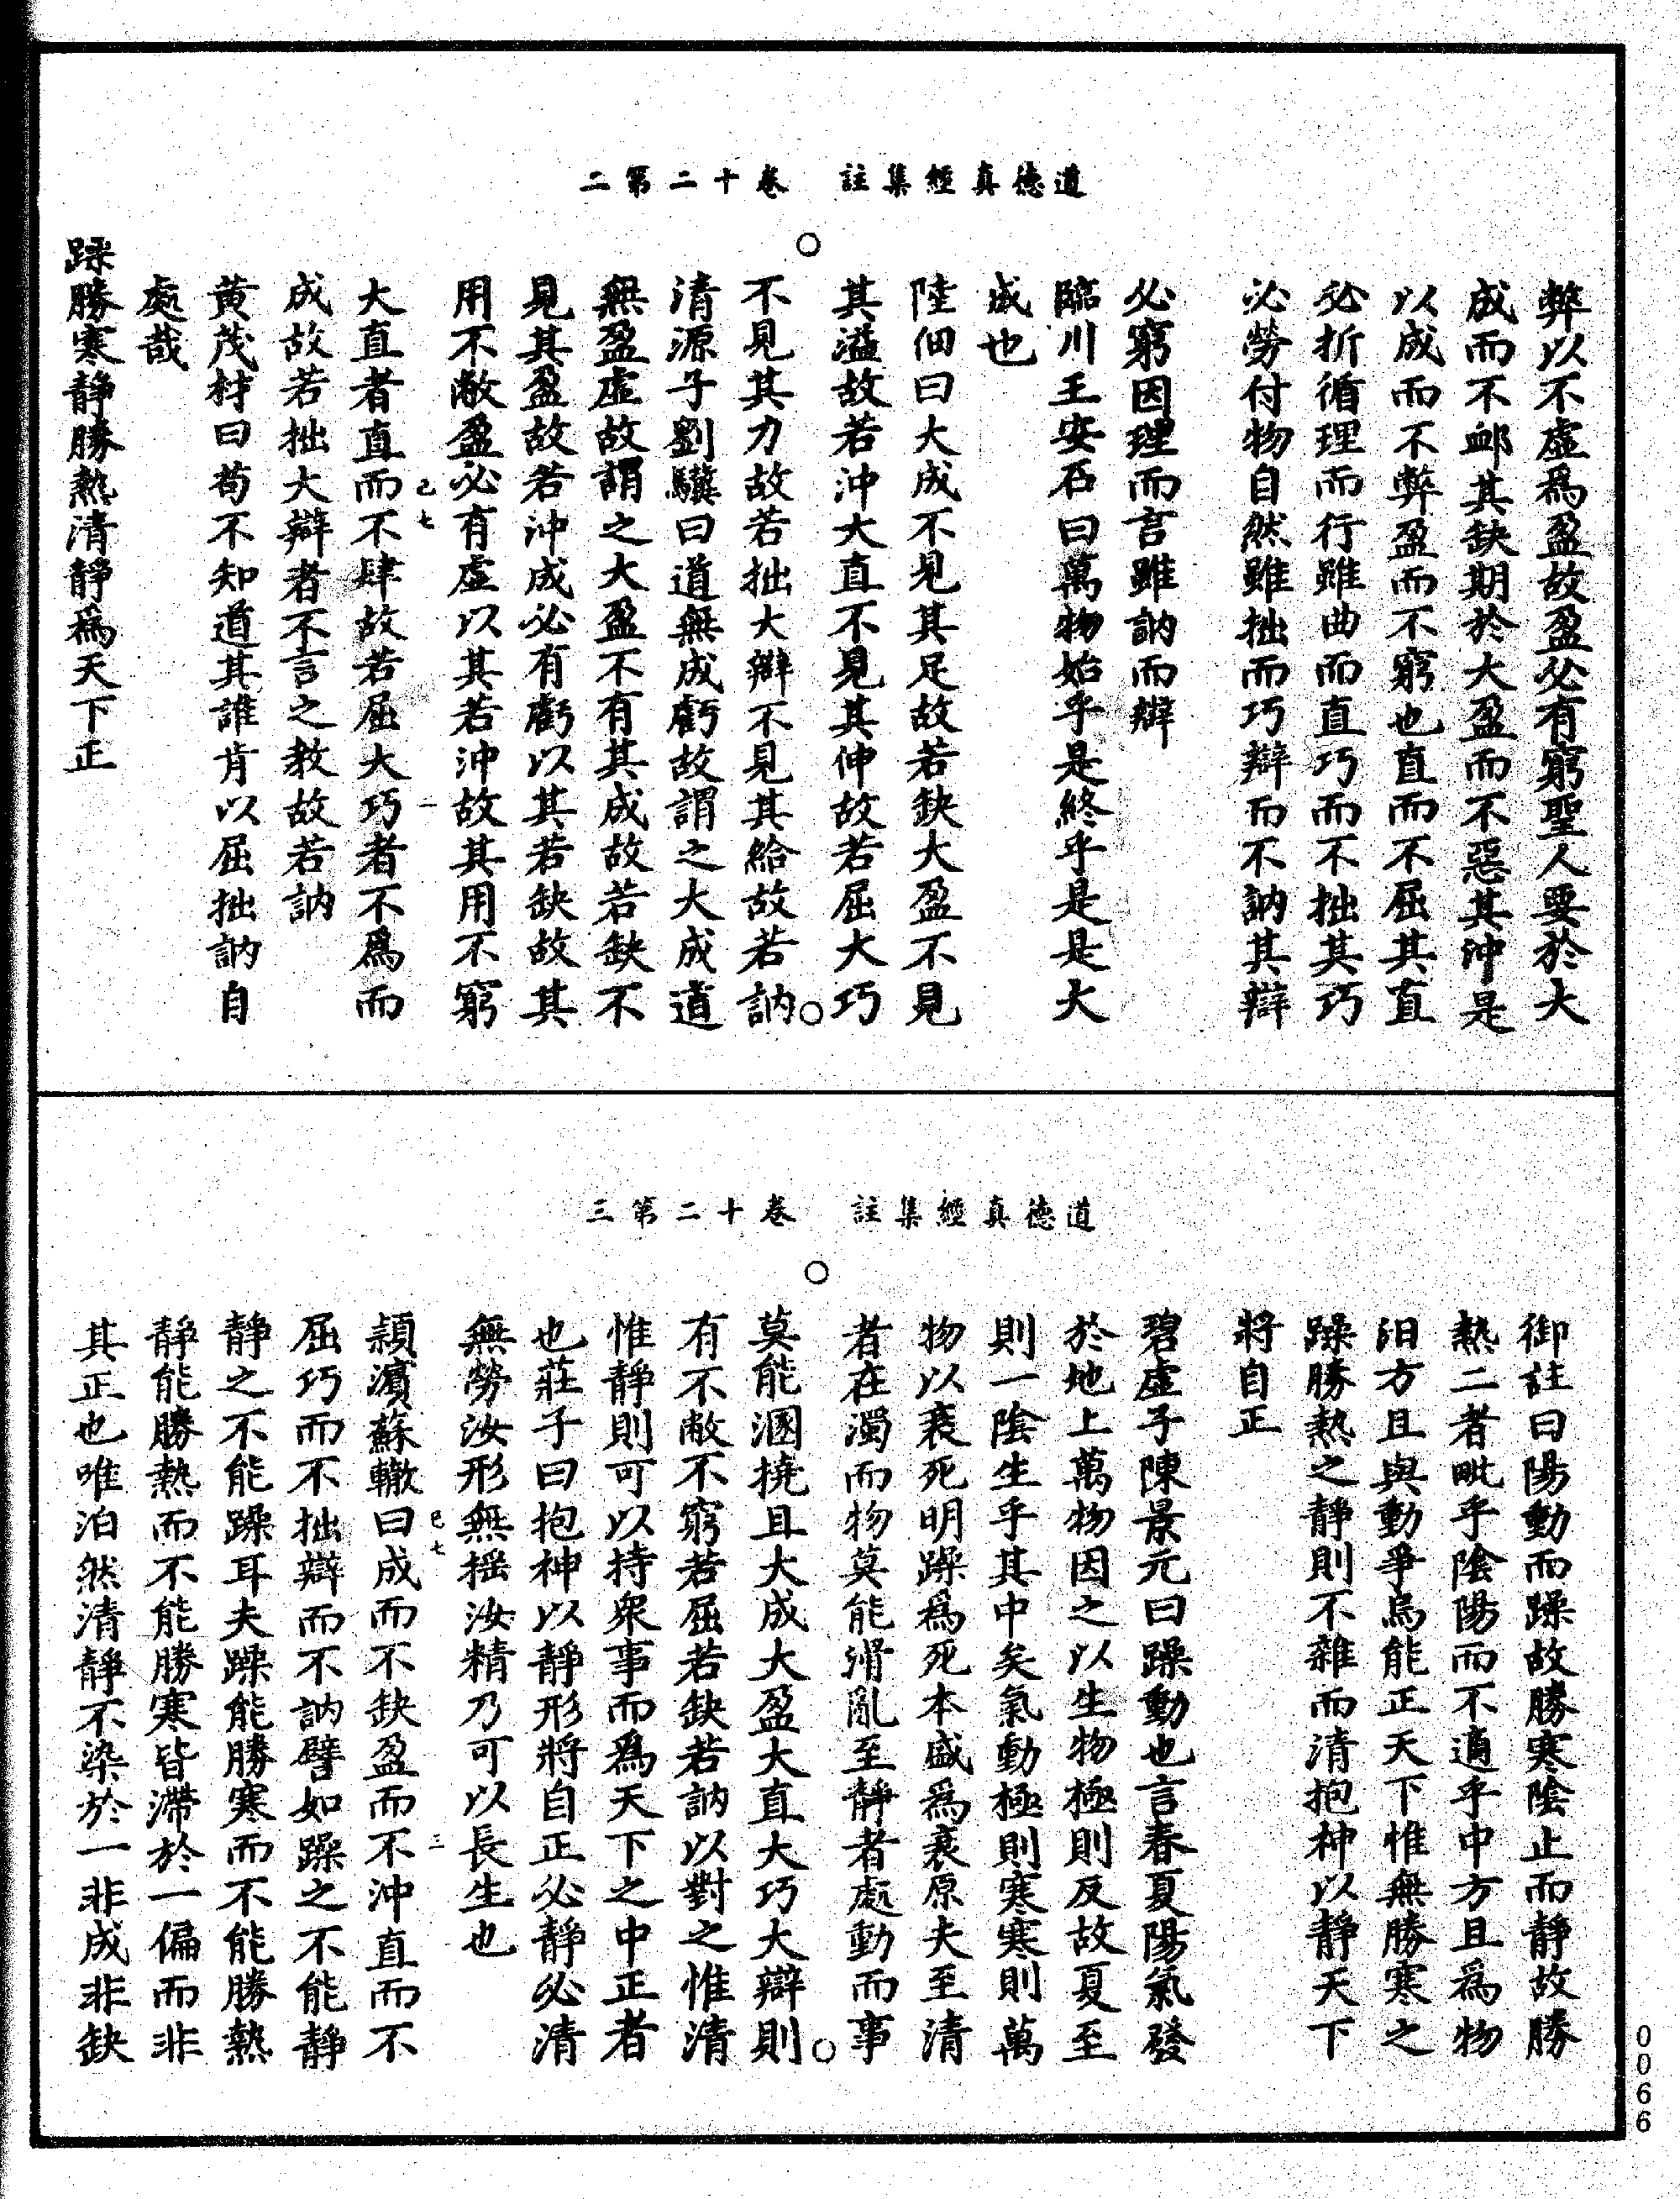 道德真經集註　卷十二第二
弊以不虛為盈故盈必有窮聖人要於大
成而不䘏其缺期於大盈而不惡其沖是
以成而不弊盈而不窮也直而不屈其直
必折循理而行雖曲而直巧而不拙其巧
必勞付物自然雖拙而巧辯而不訥其辯
必窮因理而言雖訥而辯
臨川王安石曰萬物始乎是終乎是是大
成也
陸佃曰大成不見其足故若缺大盈不見
其溢故若沖大直不見其伸故若屈大巧
不見其力故若拙大辯不見其給故若訥
清源子劉驥曰道無成虧故謂之大成道
無盈虛故謂之大盈不有其成故若缺不
見其盈故若沖成必有虧以其若缺故其
用不敝盈必有虛以其若沖故其用不窮
大直者直而不肆故若屈大巧者不為而
己七
二
成故若拙大辯者不言之教故若訥
黃茂材曰苟不知道其誰肯以屈拙訥自
處哉
躁勝寒靜勝熱清靜為天下正
道德真經集註　卷十二第三
御註曰陽動而躁故勝寒陰止而靜故勝
熱二者毗乎陰陽而不適乎中方且為物
汩方且與動爭烏能正天下惟無勝寒之
躁勝熱之靜則不雜而清抱神以靜天下
將自正
碧虛子陳景元曰躁動也言春夏陽氣發
於地上萬物因之以生物極則反故夏至
則一陰生乎其中矣氣動極則寒寒則萬
物以衰死明躁為死本盛為衰原夫至清
者在濁而物莫能滑亂至靜者處動而事
莫能溷撓且大成大盈大直大巧大辯則
有不敝不窮若屈若缺若訥以對之惟清
惟靜則可以持衆事而為天下之中正者
也莊子曰抱神以靜形將自正必靜必清
無勞汝形無搖汝精乃可以長生也
潁濱蘇轍曰成而不缺盈而不沖直而不
己七
三
屈巧而不拙辯而不訥譬如躁之不能靜
靜之不能躁耳夫躁能勝寒而不能勝熱
靜能勝熱而不能勝寒皆滯於一偏而非
其正也唯泊然清靜不染於一非成非缺
0066